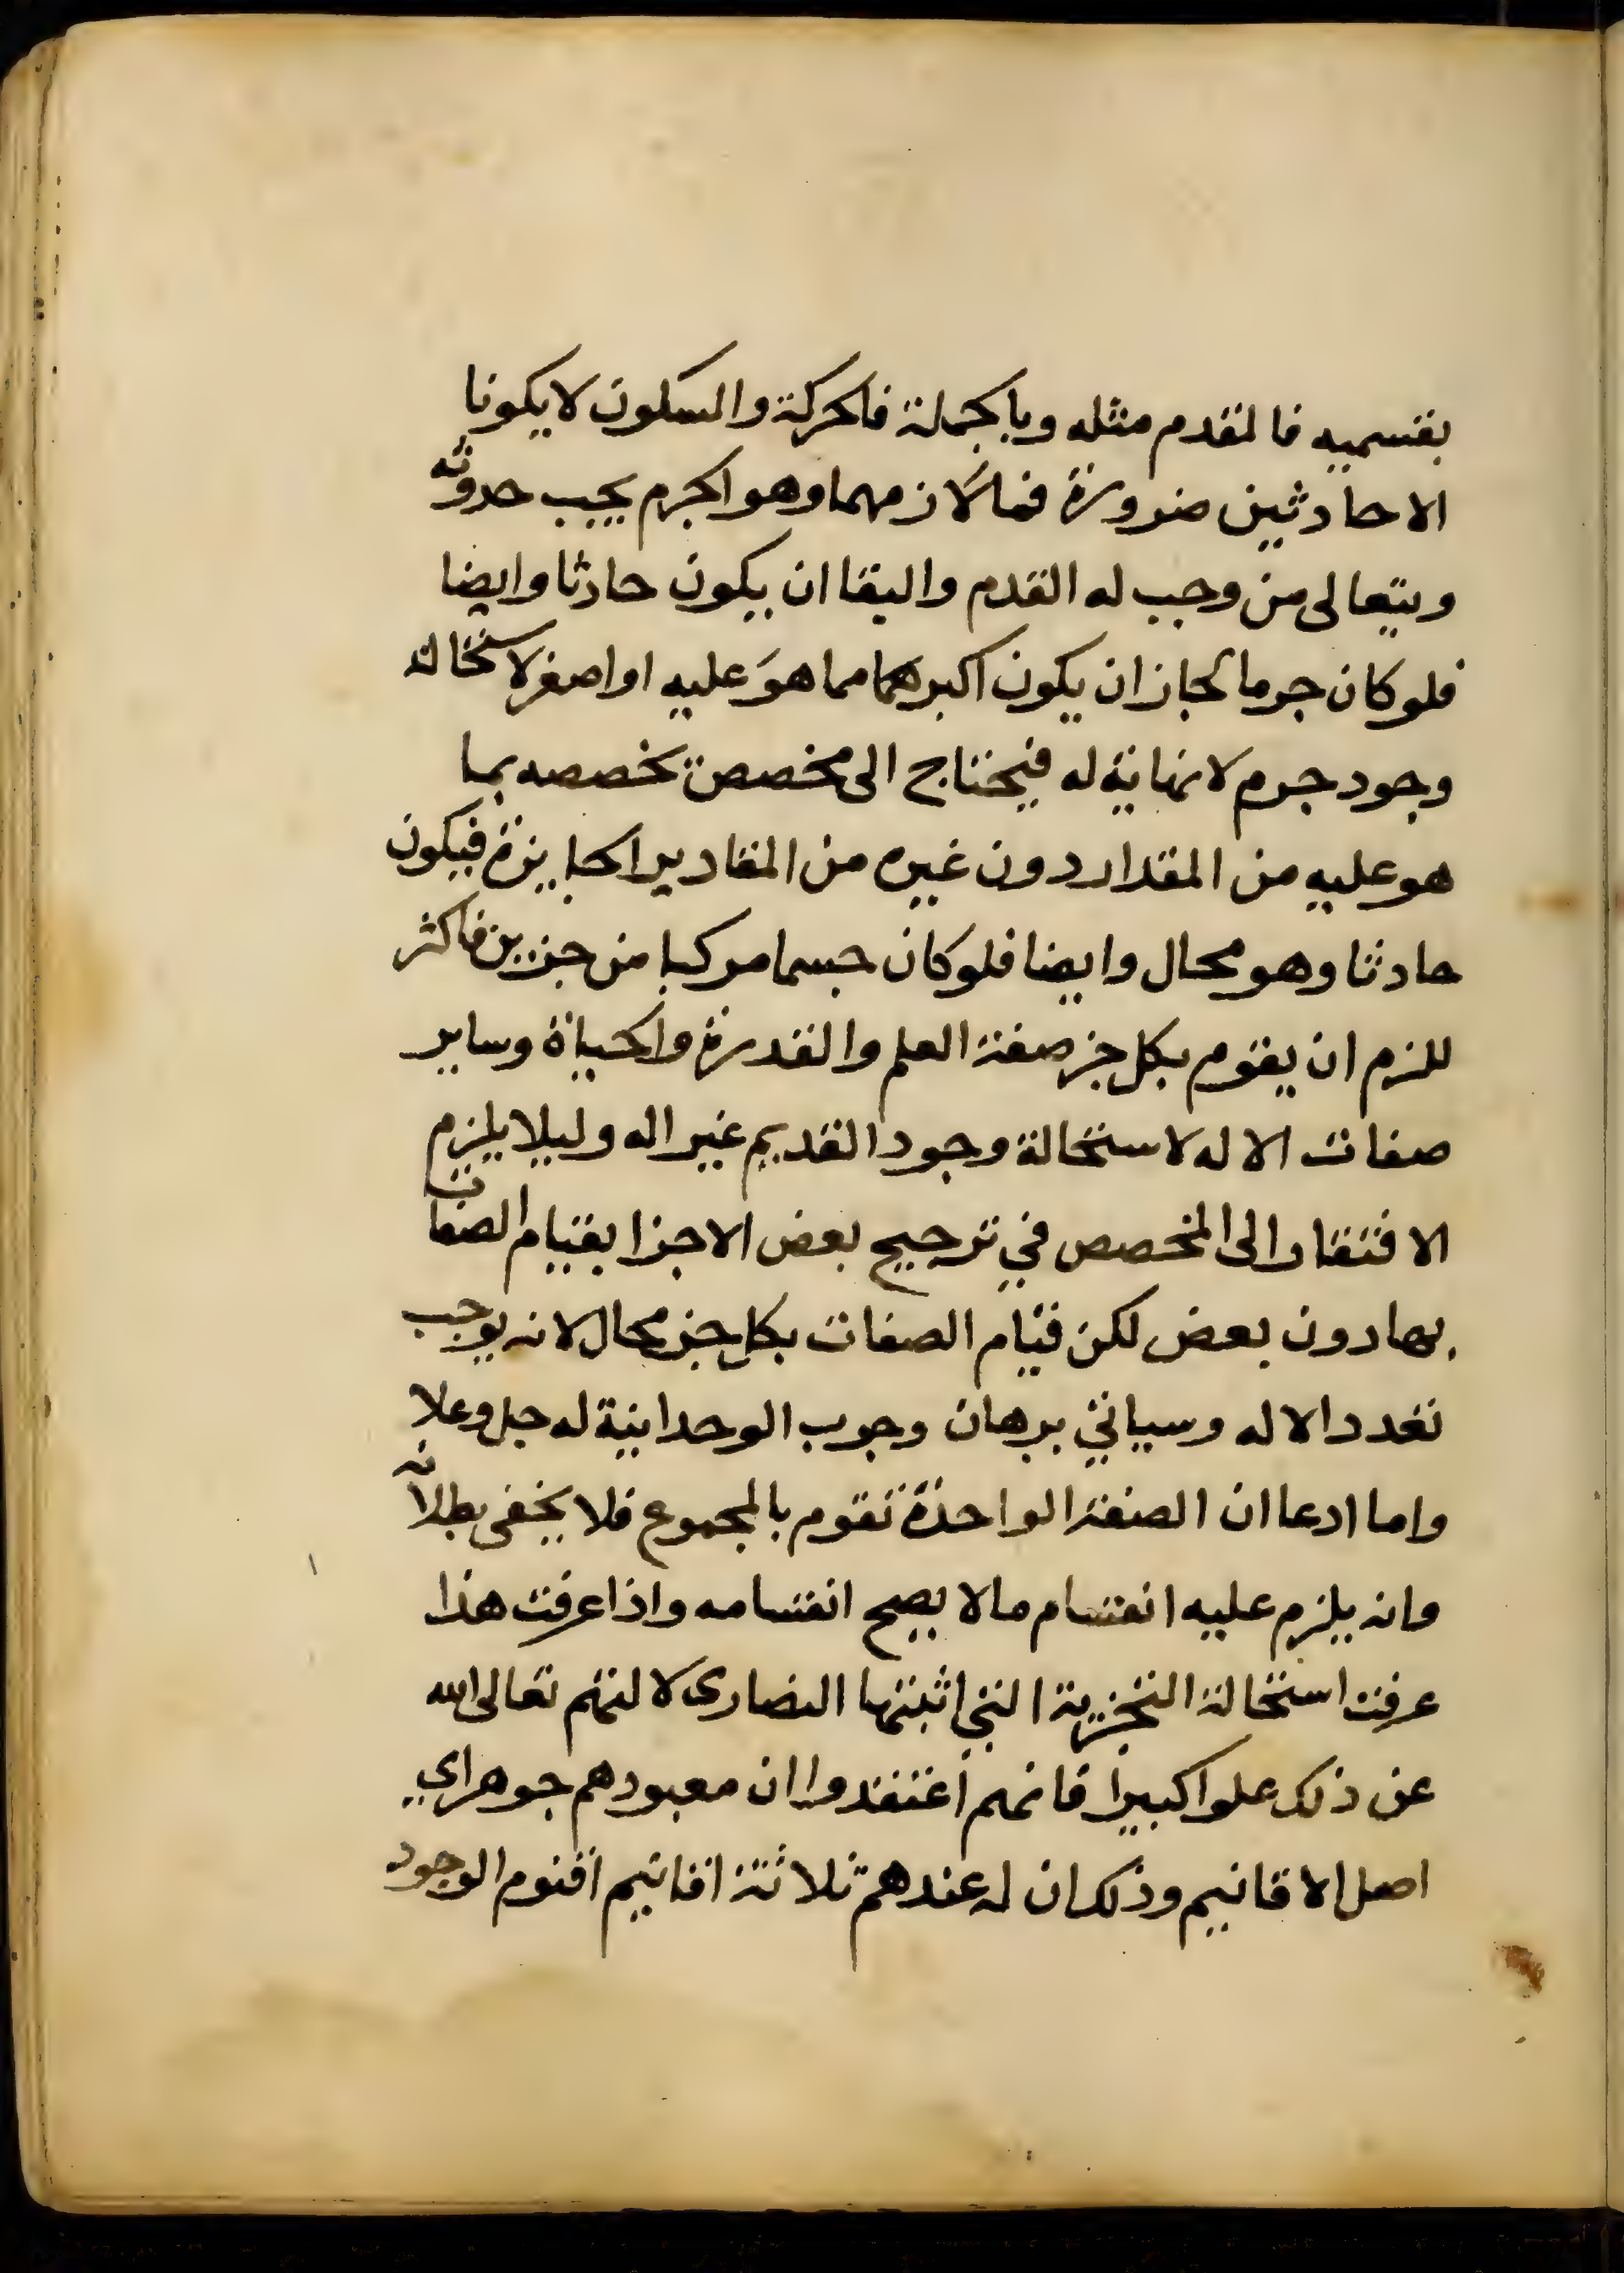 بقسميه فالمقدم مثله وبالجملة فالحركة والسكون لا يكونا
الا حادثين ضرورة فما لازمهما وهو الجرم يجب حدوثه
ويتعالى من وجب له القدم والبقا ان يكون حادثا وايضا
فلو كان جرما لجاز ان يكون اكبر مما هو عليه او اصغر لاستحالة
وجود جرم لا نهاية له فيحتاج الى مخصص يخصصه بما
هو عليه من المقدار دون غيره من المقادير الجايزة فيكون
حادثا وهو محال وايضا فلو كان جسما مركبا من جزين فاكثر
للزم ان يقوم بكل جز صفة العلم والقدرة والحياة وساير
صفات الاله لاستحالة وجود القديم غير اله وليلا يلزم
الافتقار الى المخصص في ترجيح بعض الاجزا بقيام الصفات
بها دون بعض لكن قيام الصفات بكل جز محال لانه يوجب
تعدد الاله وسياتي برهان وجوب الوحدانية له جل وعلا
واما ادعا ان الصفة الواحدة تقوم بالمجموع فلا يخفى بطلانه
وانه يلزم عليه انقسام ما لا يصح انقسامه واذا عرفت هذا
عرفت استحالة التجزية التي اثبتتها النصارى لالههم تعالى الله
عن ذلك علوا كبيرا فانهم اعتقدوا ان معبودهم جوهر اي
اصل الاقانيم وذلك ان له عندهم ثلاثة اقانيم اقنوم الوجود